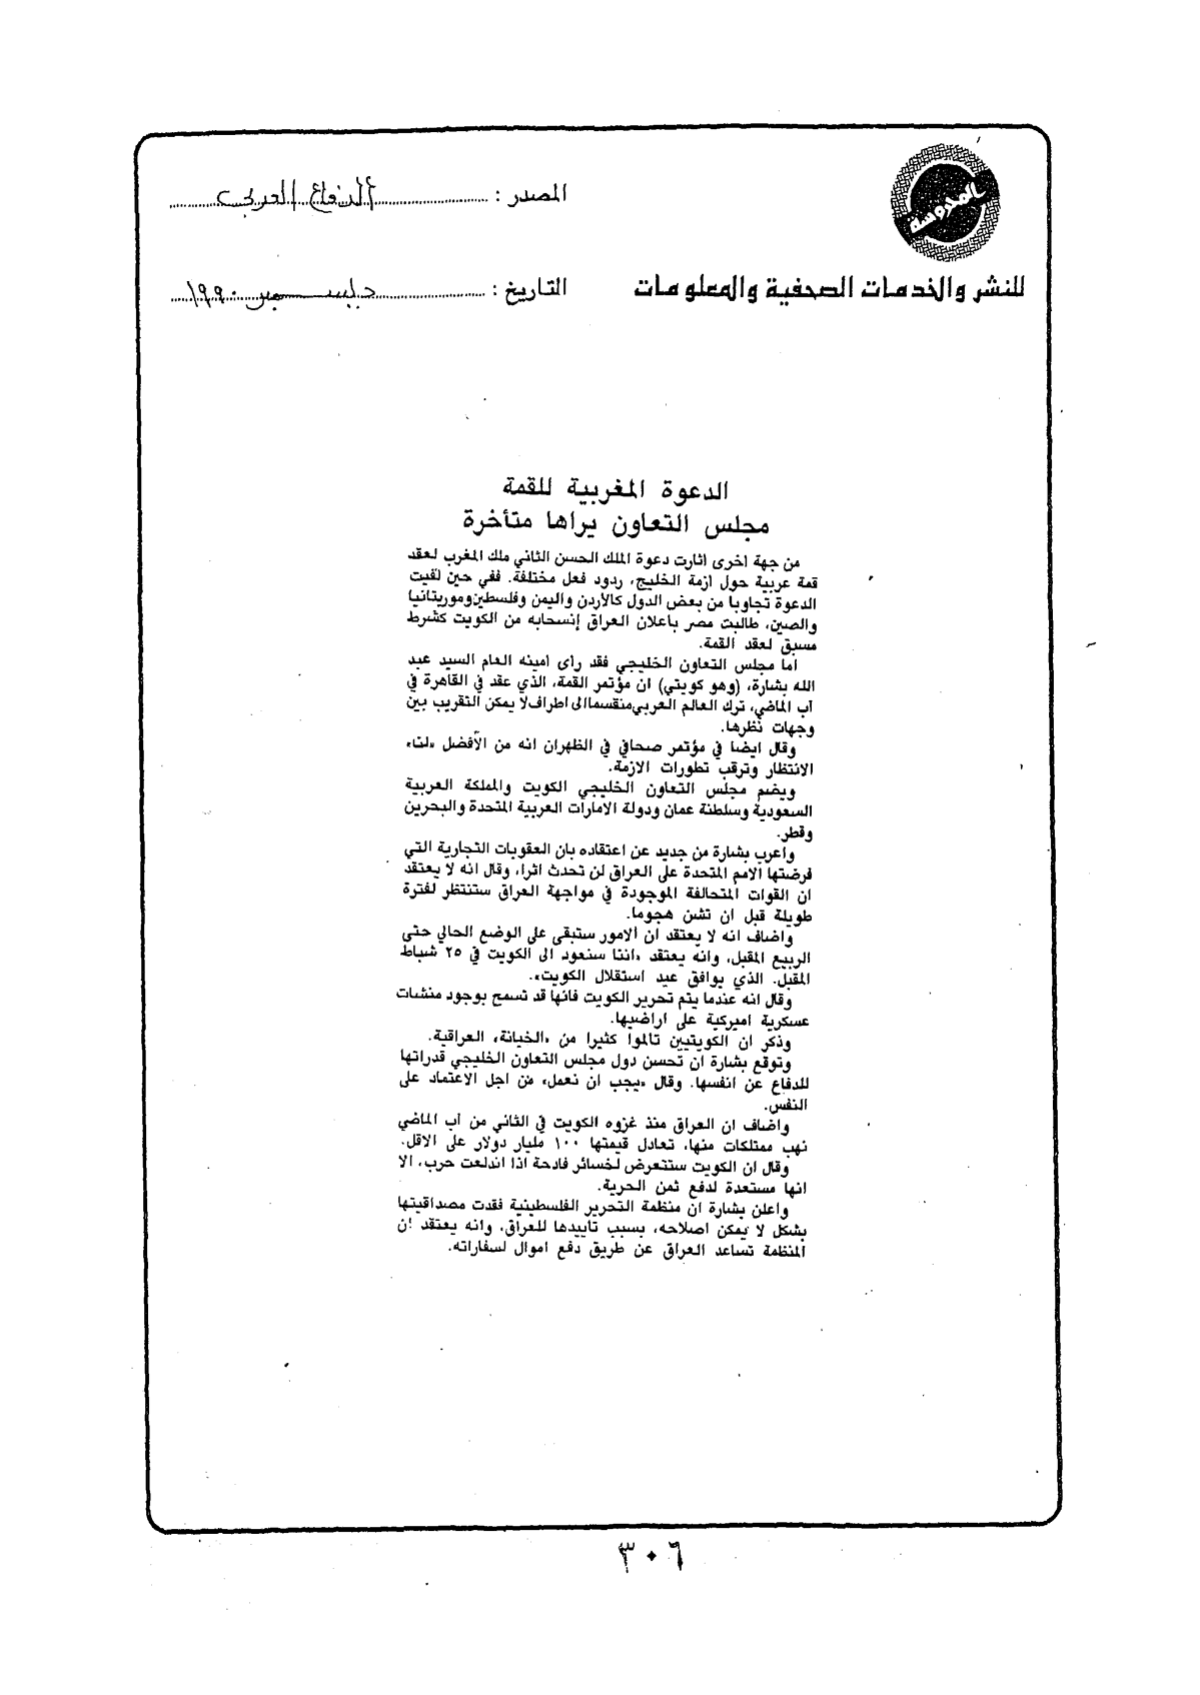 المدروسة
للنشر والخدمات الصحفية والمعلومات
المصدر : الدفاع العربي
التاريخ : ديسمبر ١٩٩٠
الدعوة المغربية للقمة
مجلس التعاون يراها متأخرة
من جهة اخرى اثارت دعوة الملك الحسن الثاني ملك المغرب لعقد
قمة عربية حول ازمة الخليج، ردود فعل مختلفة. ففي حين لقيت
الدعوة تجاوبا من بعض الدول كالأردن واليمن وفلسطين وموريتانيا
والصين، طالبت مصر باعلان العراق إنسحابه من الكويت كشرط
مسبق لعقد القمة.
اما مجلس التعاون الخليجي فقد رأى امينه العام السيد عبد
الله بشارة، (وهو كويتي) ان مؤتمر القمة، الذي عقد في القاهرة في
آب الماضي، ترك العالم العربي منقسما الى اطراف لا يمكن التقريب بين
وجهات نظرها.
وقال ايضا في مؤتمر صحافي في الظهران انه من الأفضل «لنا»
الانتظار وترقب تطورات الازمة.
ويضم مجلس التعاون الخليجي الكويت والمملكة العربية
السعودية وسلطنة عمان ودولة الامارات العربية المتحدة والبحرين
وقطر.
واعرب بشارة من جديد عن اعتقاده بان العقوبات التجارية التي
فرضتها الامم المتحدة على العراق لن تحدث اثرا، وقال انه لا يعتقد
ان القوات المتحالفة الموجودة في مواجهة العراق ستنتظر لفترة
طويلة قبل ان تشن هجوما.
واضاف انه لا يعتقد ان الامور ستبقى على الوضع الحالي حتى
الربيع المقبل، وانه يعتقد «اننا سنعود الى الكويت في ٢٥ شباط
المقبل. الذي يوافق عيد استقلال الكويت».
وقال انه عندما يتم تحرير الكويت فانها قد تسمح بوجود منشات
عسكرية اميركية على اراضيها.
وذكر ان الكويتيين تالموا كثيرا من «الخيانة» العراقية.
وتوقع بشارة ان تحسن دول مجلس التعاون الخليجي قدراتها
للدفاع عن انفسها. وقال «يجب ان نعمل» من اجل الاعتماد على
النفس.
واضاف ان العراق منذ غزوه الكويت في الثاني من آب الماضي
نهب ممتلكات منها، تعادل قيمتها ١٠٠ مليار دولار على الاقل.
وقال ان الكويت ستتعرض لخسائر فادحة اذا اندلعت حرب، الا
انها مستعدة لدفع ثمن الحرية.
واعلن بشارة ان منظمة التحرير الفلسطينية فقدت مصداقيتها
بشكل لا يمكن اصلاحه، بسبب تاييدها للعراق، وانه يعتقد ان
المنظمة تساعد العراق عن طريق دفع اموال لسفاراته.
٣٠٦